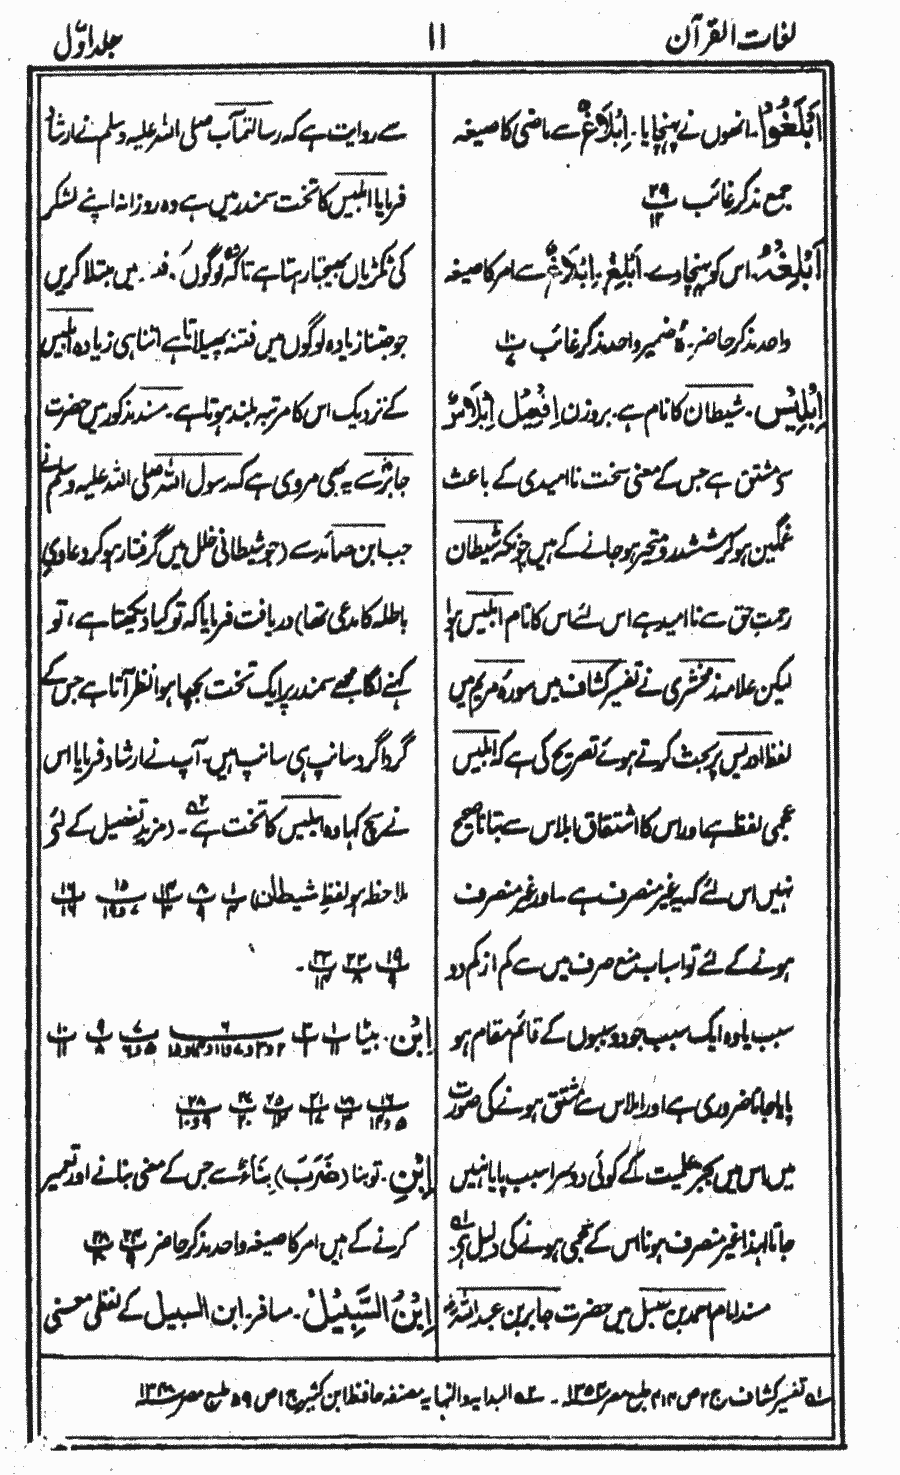 لغات القرآن
۱۱
جلد اوّل
اَبْلَغُوْا۔ انھوں نے پہنچایا۔ اِبْلَاغٌ سے ماضی کا صیغہ
جمع مذکر غائب ۲۹/۱۲
اَبْلِغْہُ۔ اس کو پہنچا دے۔ اَبْلِغْ۔ اِبْلَاغٌ سے امر کا صیغہ
واحد مذکر حاضر۔ ہٗ ضمیر واحد مذکر غائب ۱۰/۷
اِبْلِیْس۔ شیطان کا نام ہے۔ بروزن اِفْعِیْل اِبْلَاسٌ
سے مشتق ہے جس کے معنی سخت نا امیدی کے باعث
غمگین ہو کر ششدر و متحیر ہو جانے کے ہیں چونکہ شیطان
رحمتِ حق سے نا امید ہے اس لئے اس کا نام ابلیس ہوا
لیکن علامہ زمخشری نے تفسیر کشاف میں سورۂ مریم میں
لفظ ادریس پر بحث کرتے ہوئے تصریح کی ہے کہ ابلیس
عجمی لفظ ہے اور اس کا اشتقاق ابلاس سے بتانا صحیح
نہیں اس لئے کہ یہ غیر منصرف ہے۔ اور غیر منصرف
ہونے کے لئے تو اسباب منع صرف میں سے کم از کم دو
سبب یا وہ ایک سبب جو دو سببوں کے قائم مقام ہو
پایا جانا ضروری ہے اور ابلاس سے مشتق ہونے کی صورت
میں اس میں بجز علمیت کے کوئی دوسرا سبب پایا نہیں
جاتا لہذا غیر منصرف ہونا اس کے عجمی ہونے کی دلیل ہے۔ ۱؎
مسند امام احمد بن حنبل میں حضرت جابر بن عبد اللہؓ
سے روایت ہے کہ رسالتمآب صلی اللہ علیہ وسلم نے ارشاد
فرمایا ابلیس کا تخت سمندر میں ہے وہ روزانہ اپنے لشکر
کی ٹکڑیاں بھیجتا رہتا ہے تاکہ وہ لوگوں کو فتنہ میں مبتلا کریں
جو جتنا زیادہ لوگوں میں فتنہ پھیلاتا ہے اتنا ہی زیادہ ابلیس
کے نزدیک اس کا مرتبہ بلند ہوتا ہے۔ مسند مذکور میں حضرت
جابرؓ سے یہ بھی مروی ہے کہ رسول اللہ صلی اللہ علیہ وسلم نے
جب ابن صائد سے (جو شیطانی خلل میں گرفتار ہو کر دعاوی
باطلہ کا مدعی تھا) دریافت فرمایا کہ تو کیا دیکھتا ہے، تو
کہنے لگا مجھے سمندر پر ایک تخت بچھا ہوا نظر آتا ہے جس کے
گردا گرد سانپ ہی سانپ ہیں۔ آپ نے ارشاد فرمایا اس
نے سچ کہا وہ ابلیس کا تخت ہے۔ ۲؎ (مزید تفصیل کے لئے
ملاحظہ ہو لفظِ شیطان) ۱/۴ ۸/۹ ۱۴/۳ ۱۵/۷و۱۹ ۱۶/۱۹
۱۹/۹ ۲۲/۸ ۲۳/۱۴۔
اِبْن۔ بیٹا ۱/۱۱ ۳/۴ ۶/۲و۳و۷و۱۱و۱۴و۱۵ ۷/۵و۶ ۹/۸ ۱۰/۱۱
۱۶/۵و۱۴ ۱۹/۳ ۲۱/۱۷ ۲۵/۱۳ ۲۷/۲۰ ۲۸/۹و۱۰
اِبْنِ۔ تو بنا (ضَرَبَ) بِنَاءٌ سے جس کے معنی بنانے اور تعمیر
کرنے کے ہیں امر کا صیغہ واحد مذکر حاضر ۲۴/۹ ۲۸/۲۰
اِبْنُ السَّبِیْلْ۔ مسافر۔ ابن السبیل کے لفظی معنی
۱؎ تفسیر کشاف ج ۲ ص ۴۱۳ طبع مصر ۱۳۵۴ھ۔ ۲؎ البدایہ والنہایہ مصنفہ حافظ ابن کثیر ج ۱ ص ۵۹ طبع مصر ۱۳۴۸ھ